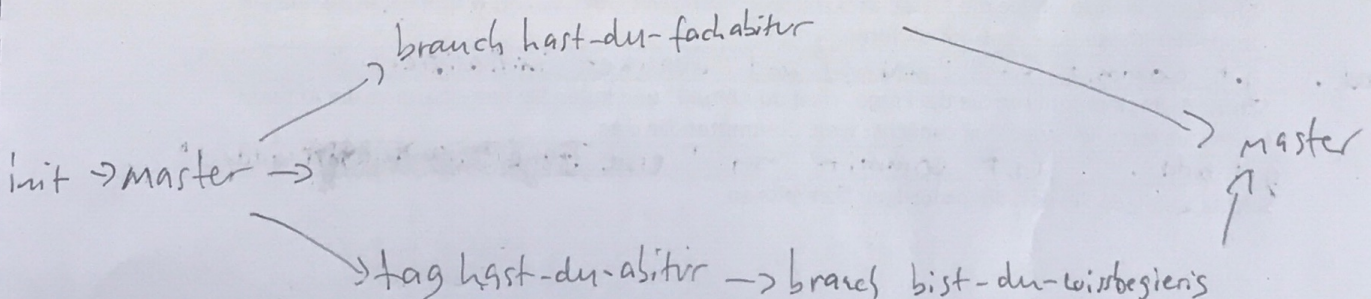 branch hast-du-fachabitur
init → master →
master
tag hast-du-abitur → branch bist-du-wissbegierig